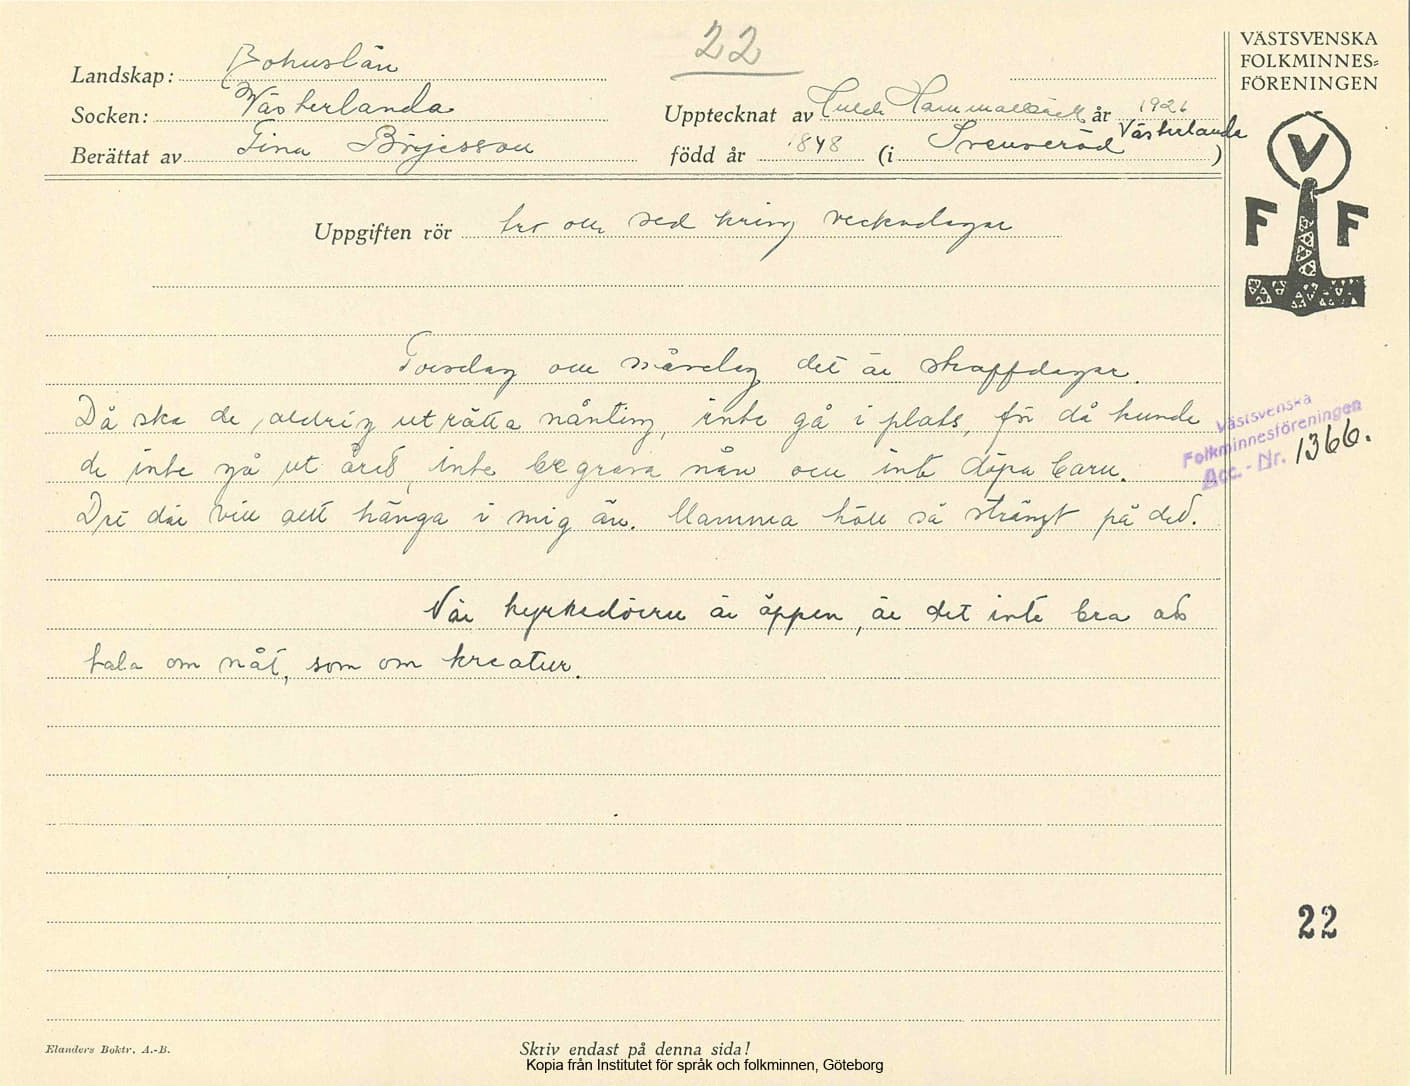 22
VÄSTSVENSKA
FOLKMINNES=
FÖRENINGEN
Landskap: Bohuslän
Socken: Västerlanda
Upptecknat av Hulda Hammarbäck år 1926
Berättat av Tina Börjesson
född år 1848 (i Svenseröd Västerlanda)
V
F F
Uppgiften rör tro och sed kring veckodagar
Torsdag och måndag det är skaffdagar.
Då ska de aldrig uträtta nånting, inte gå i plats, för då kunde
de inte gå ut året, inte begrava nån och inte döpa barn.
Det där vill allt hänga i mig än. Mamma höll så strängt på det.
Västsvenska
Folkminnesföreningen
Acc.-Nr. 1366.
När kyrkedörrn är öppen, är det inte bra att
tala om nåt, som om kreatur.
22
Elanders Boktr. A.-B.
Skriv endast på denna sida!
Kopia från Institutet för språk och folkminnen, Göteborg